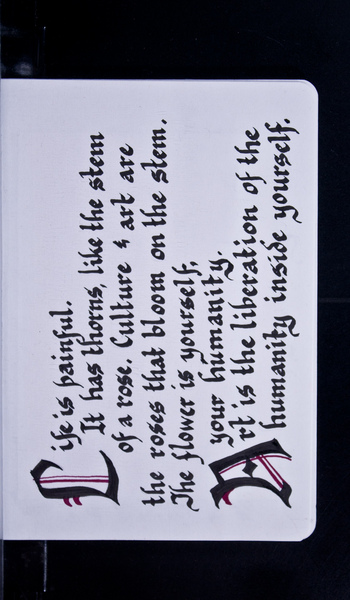 Life is painful.
It has thorns, like the stem
of a rose. Culture & art are
the roses that bloom on the stem.
The flower is yourself,
your humanity.
Art is the liberation of the
humanity inside yourself.